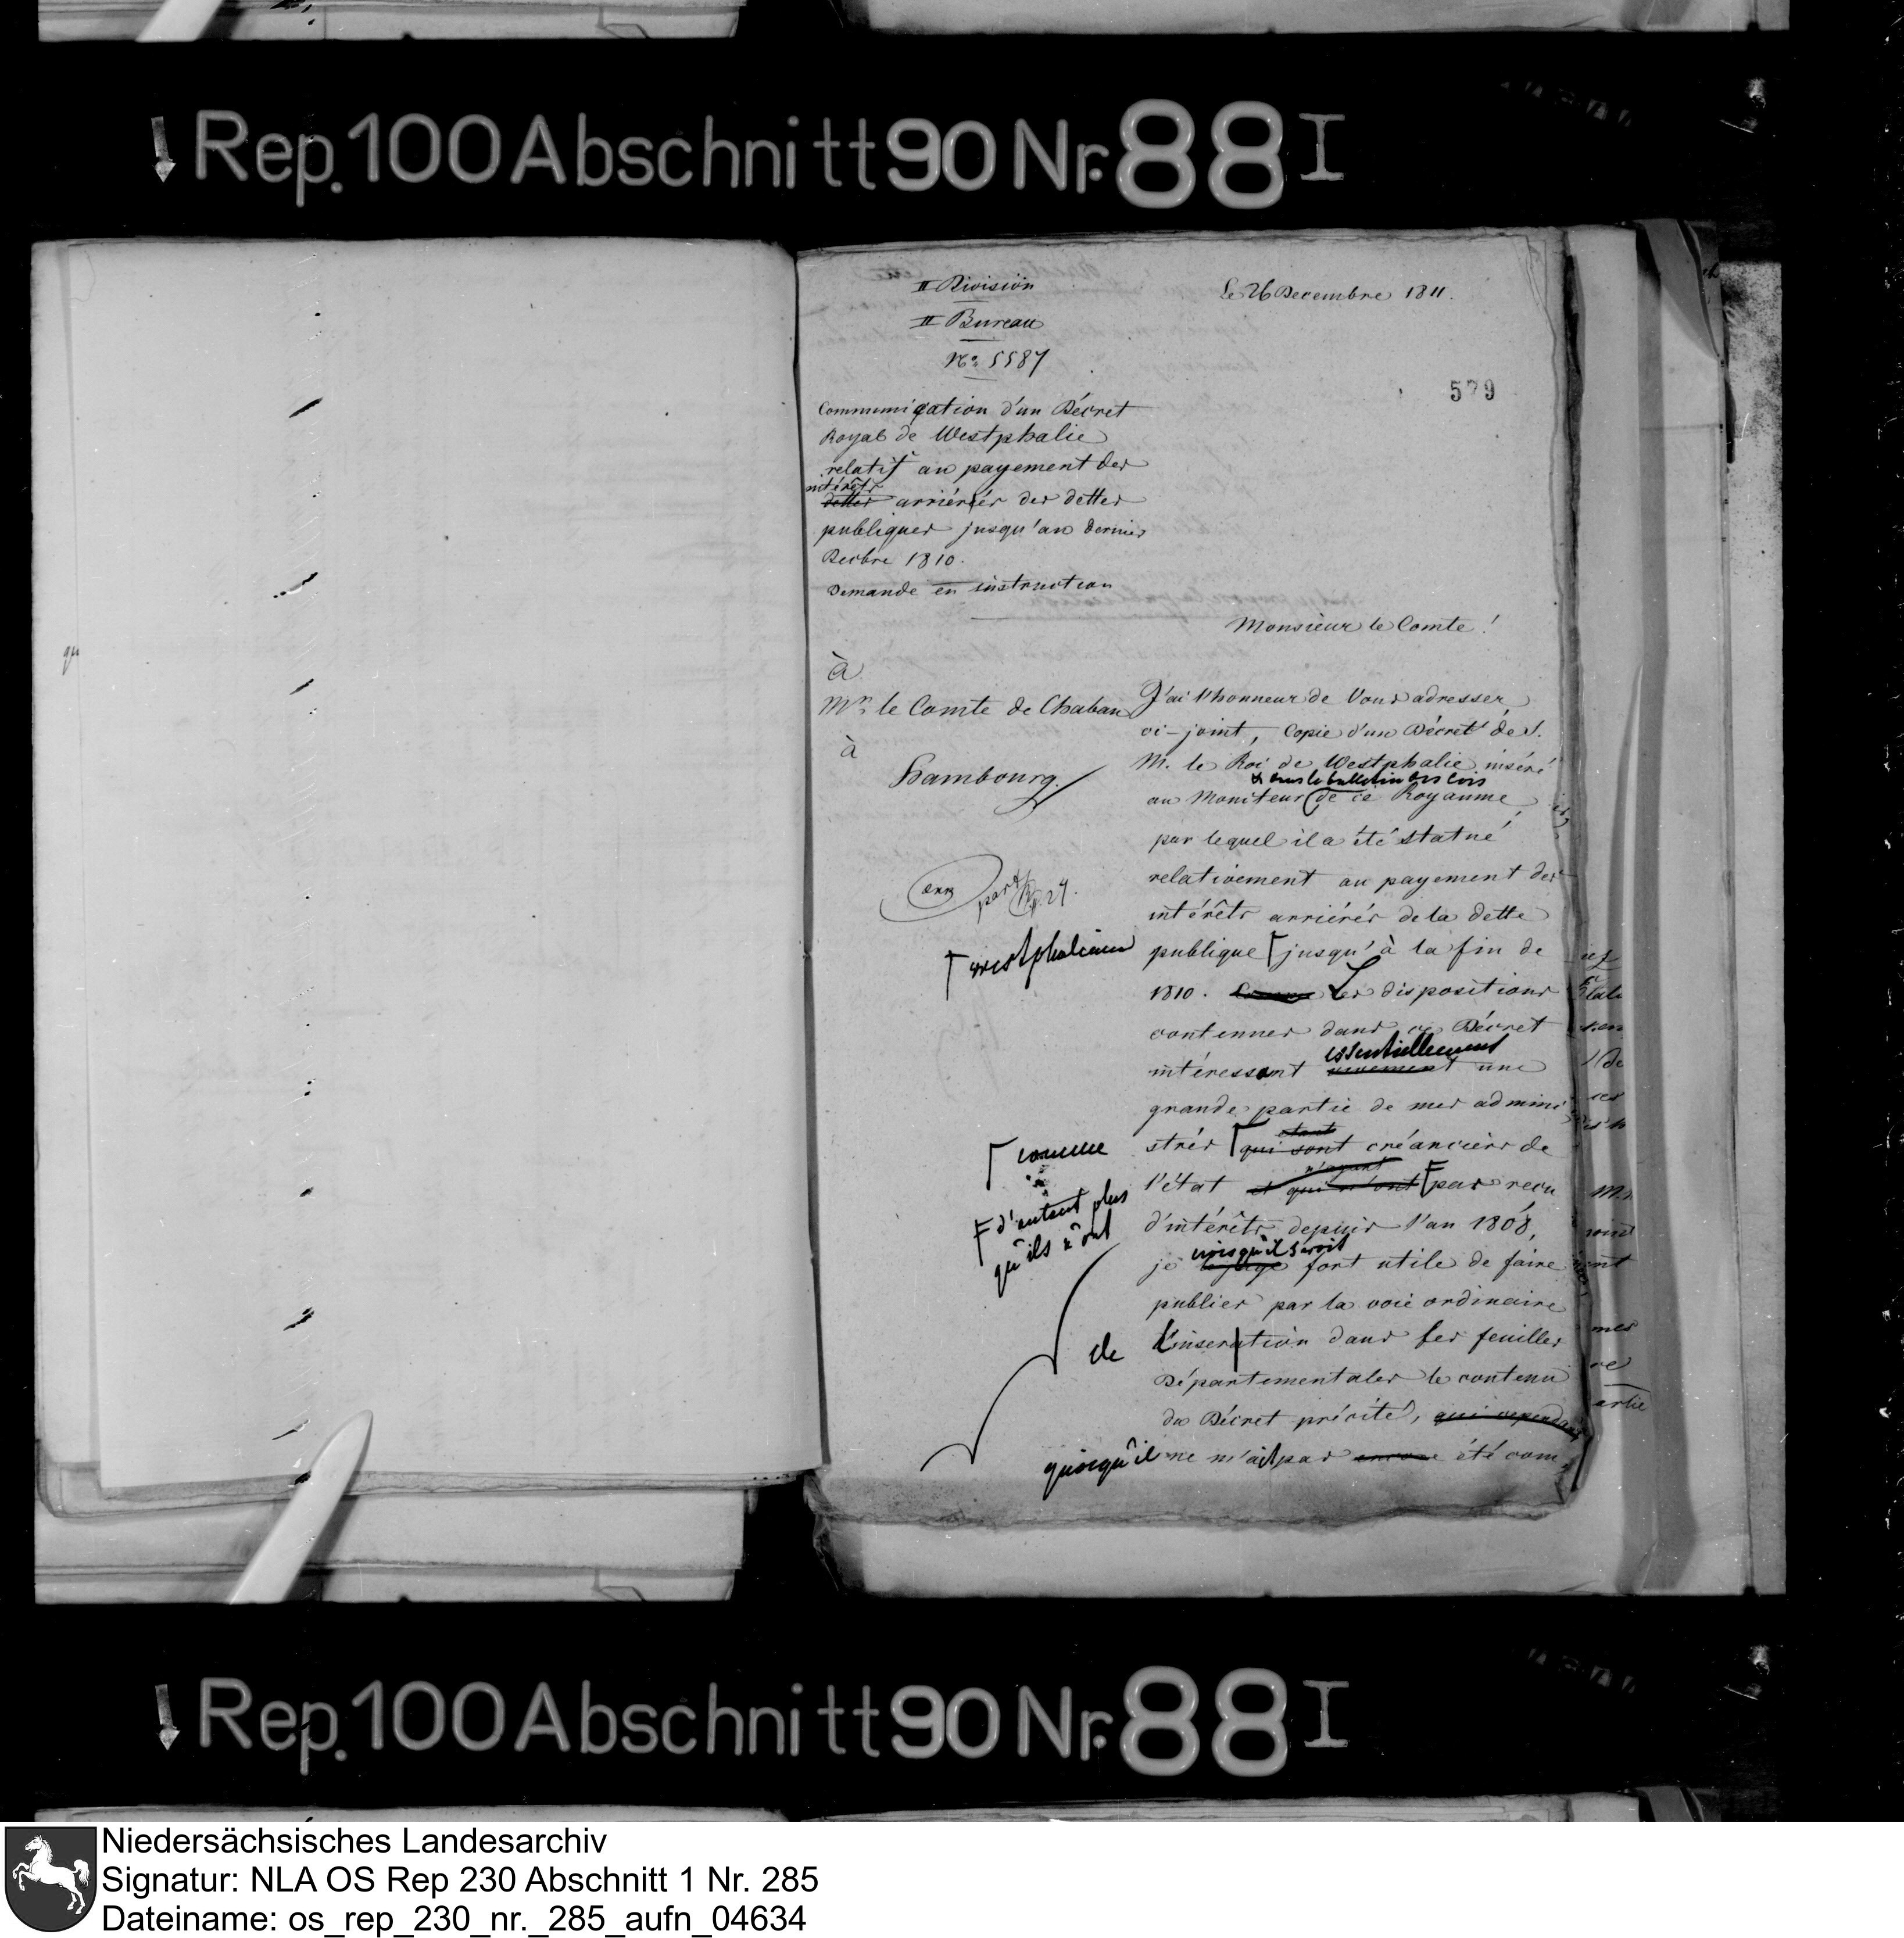 Rep. 100 Abschnitt 90 Nr. 88 I
II Division
II Bureau
No. 5587
Le 26 Decembre 1811.
Communication d'un Décret
Royal de Westphalie
relatif au payement des
intérêts
dettes arriérées des dettes
publiques jusqu'au dernier
Decbre 1810.
Demande en instruction
Monsieur le Comte !
à
Mr. le Comte de Chaban
à
Hambourg.
J'ai l'honneur de Vous adresser
ci-joint, Copie d'un Décret de S.
M. le Roi de Westphalie inséré
& dans le bulletin des lois
au Moniteur de ce Royaume
par lequel il a été statué
relativement au payement des
intérêts arriérés de la dette
westphalienne
publique jusqu'à la fin de
1810. Les dispositions
contenues dans ce Décret
essentiellement
intéressant vivement une
grande partie de mes admini
comme
étant
strés qui sont créanciers de
n'ayant
l'état et qui n'ont pas reçu
d'autant plus
qu'ils n'ont
d'intérêts depuis l'an 1808,
crois qu'il seroit
je fort utile de faire
publier par la voie ordinaire
de l'insertion dans les feuilles
Départementales le contenu
du Décret précité, qui cependant
quoiqu'il ne m'ait pas encore été com
Rep. 100 Abschnitt 90 Nr. 88 I
Niedersächsisches Landesarchiv
Signatur: NLA OS Rep 230 Abschnitt 1 Nr. 285
Dateiname: os_rep_230_nr._285_aufn_04634